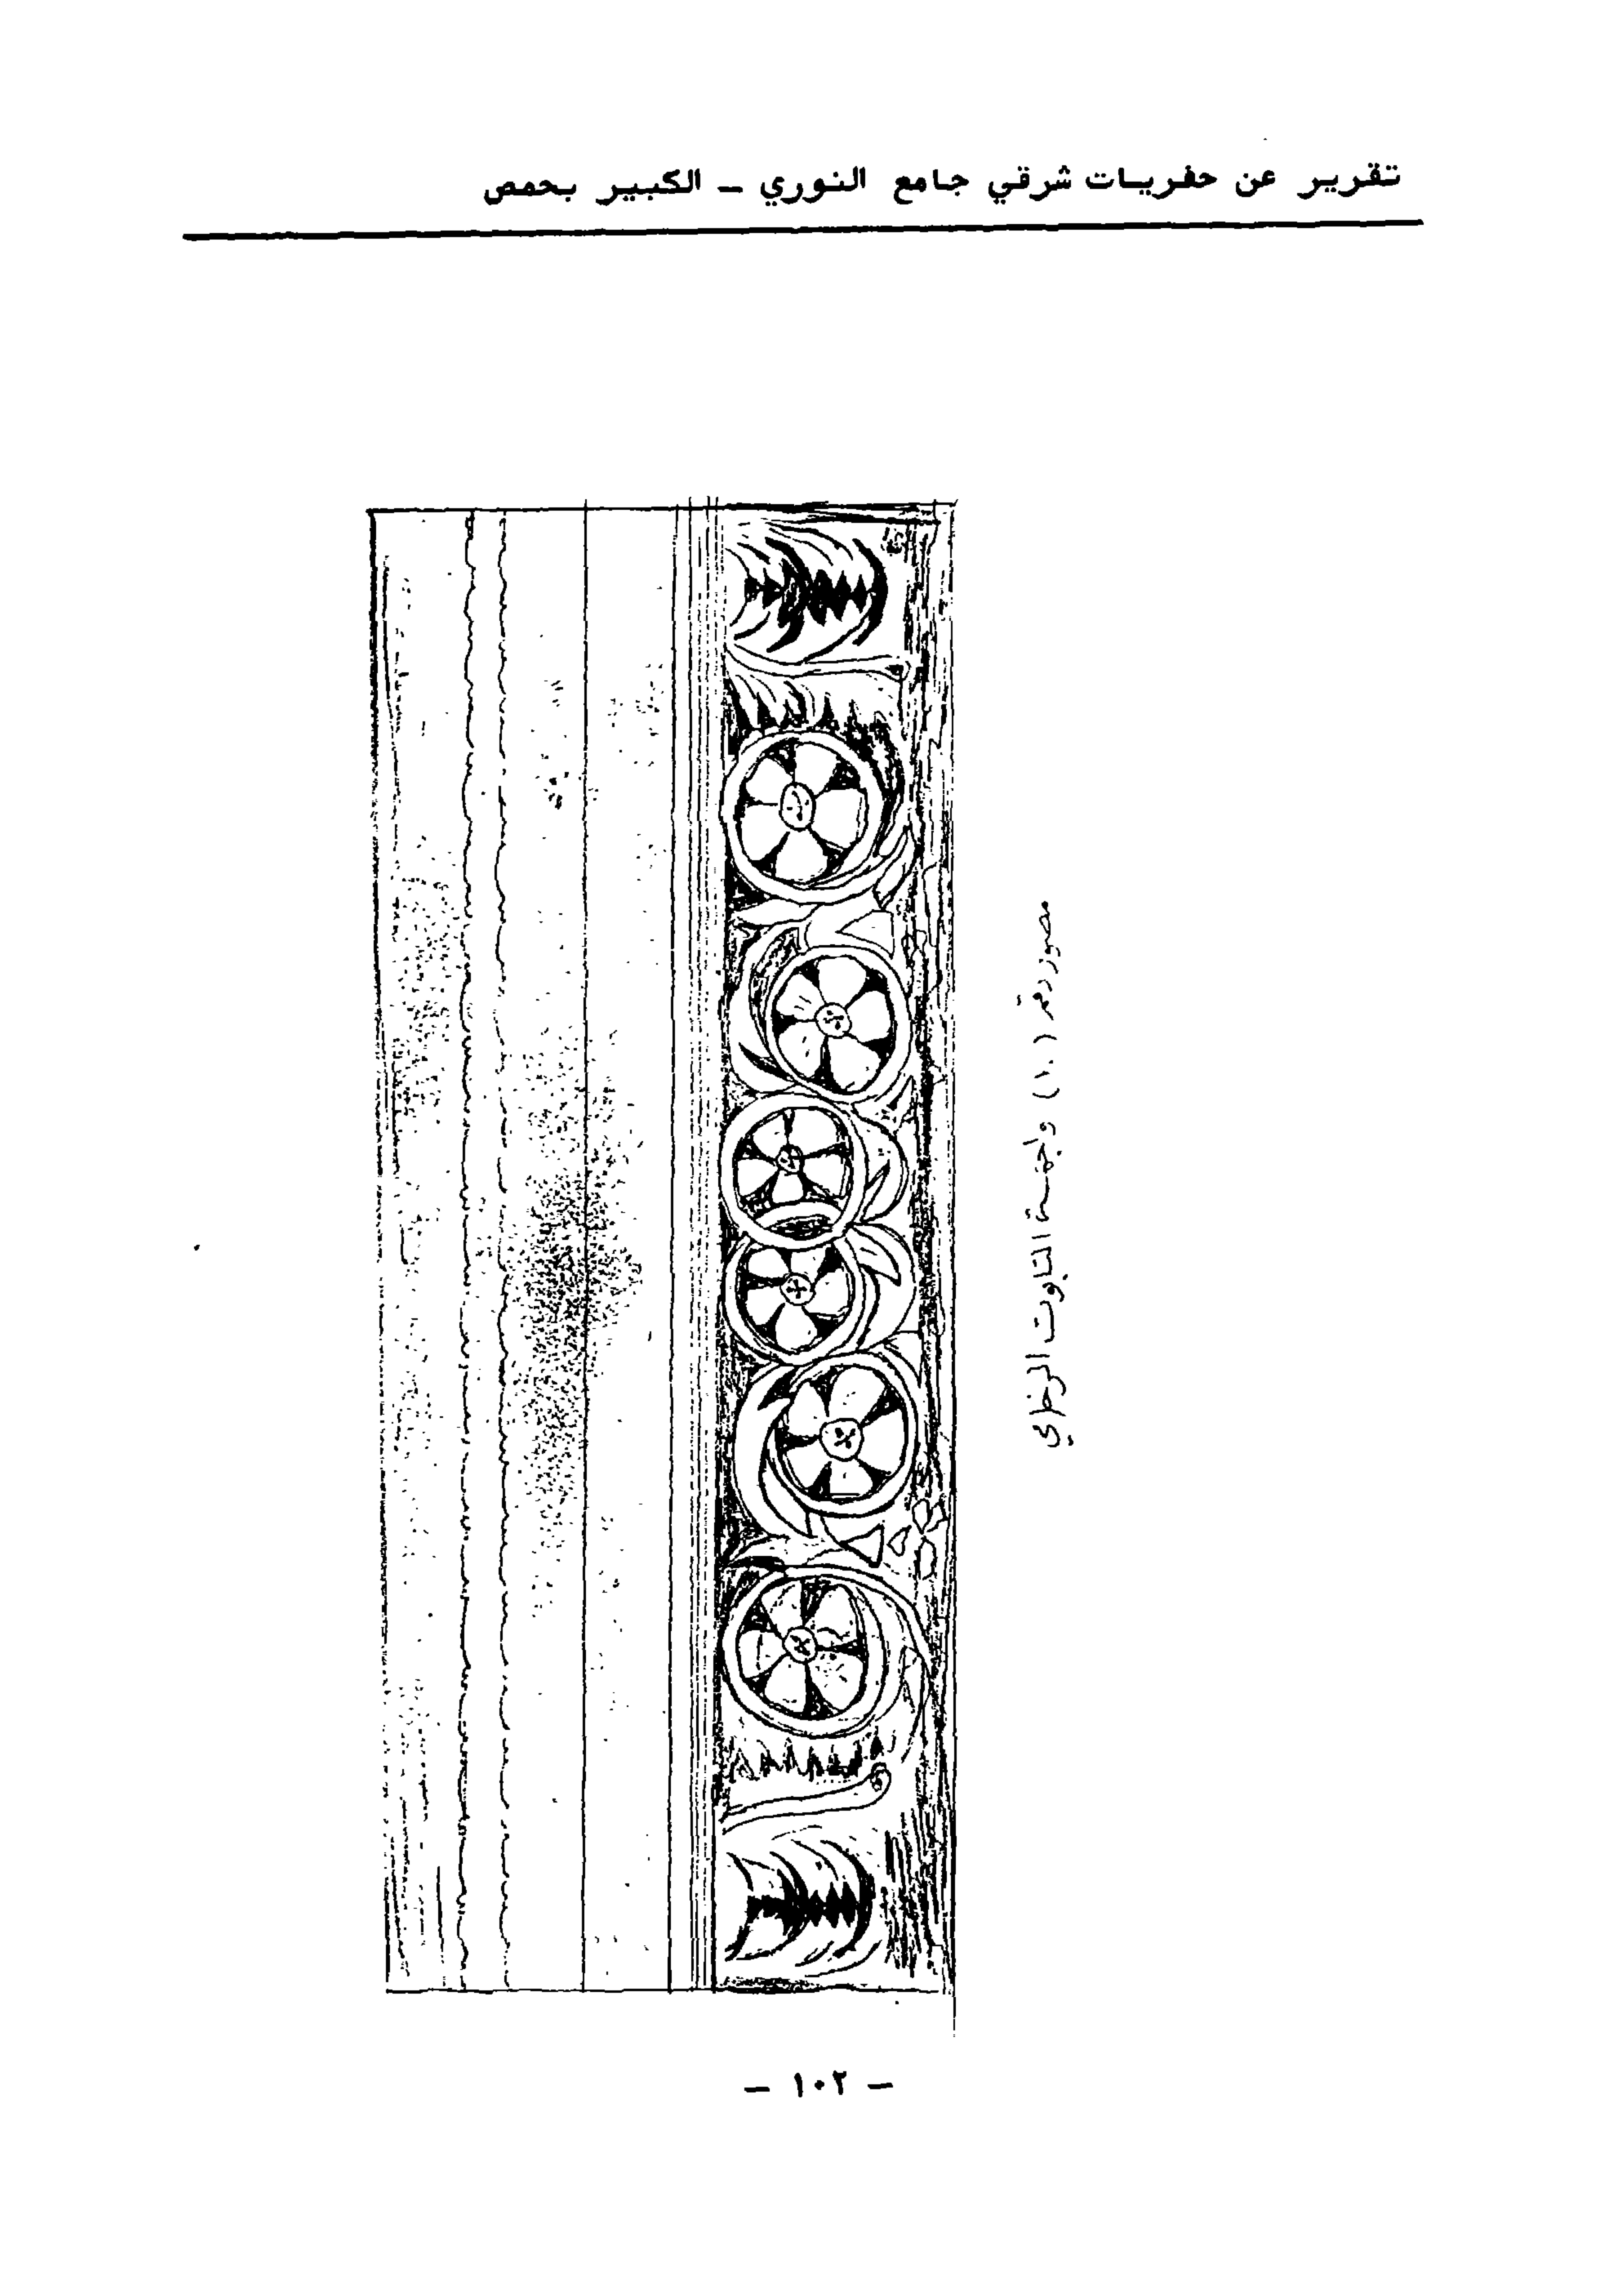 تقرير عن حفريات شرقي جامع النوري – الكبير بحمص
مصور رقم (١٠) واجهة التابوت الرخامي
– ١٠٢ –